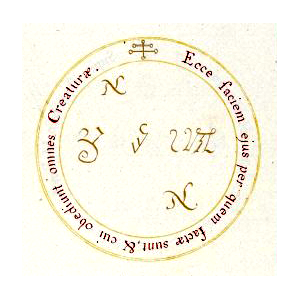 Ecce faciem ejus per quem factæ sunt, & cui obediunt omnes Creaturæ.
N
N